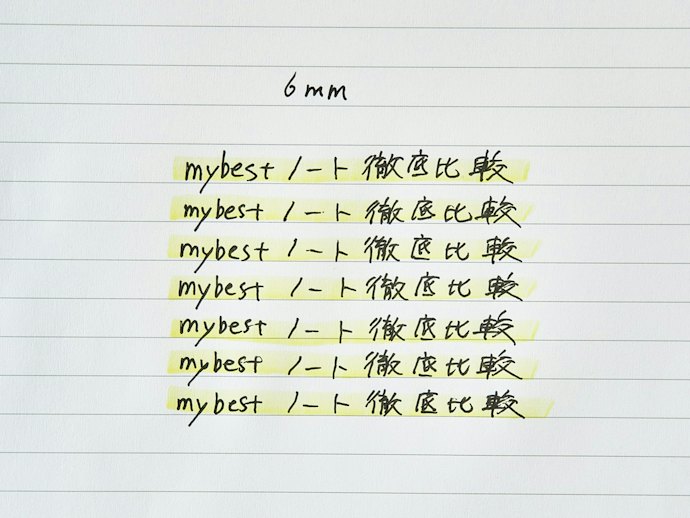 6mm
mybest ノート 徹底比較
mybest ノート 徹底比較
mybest ノート 徹底比較
mybest ノート 徹底比較
mybest ノート 徹底比較
mybest ノート 徹底比較
mybest ノート 徹底比較